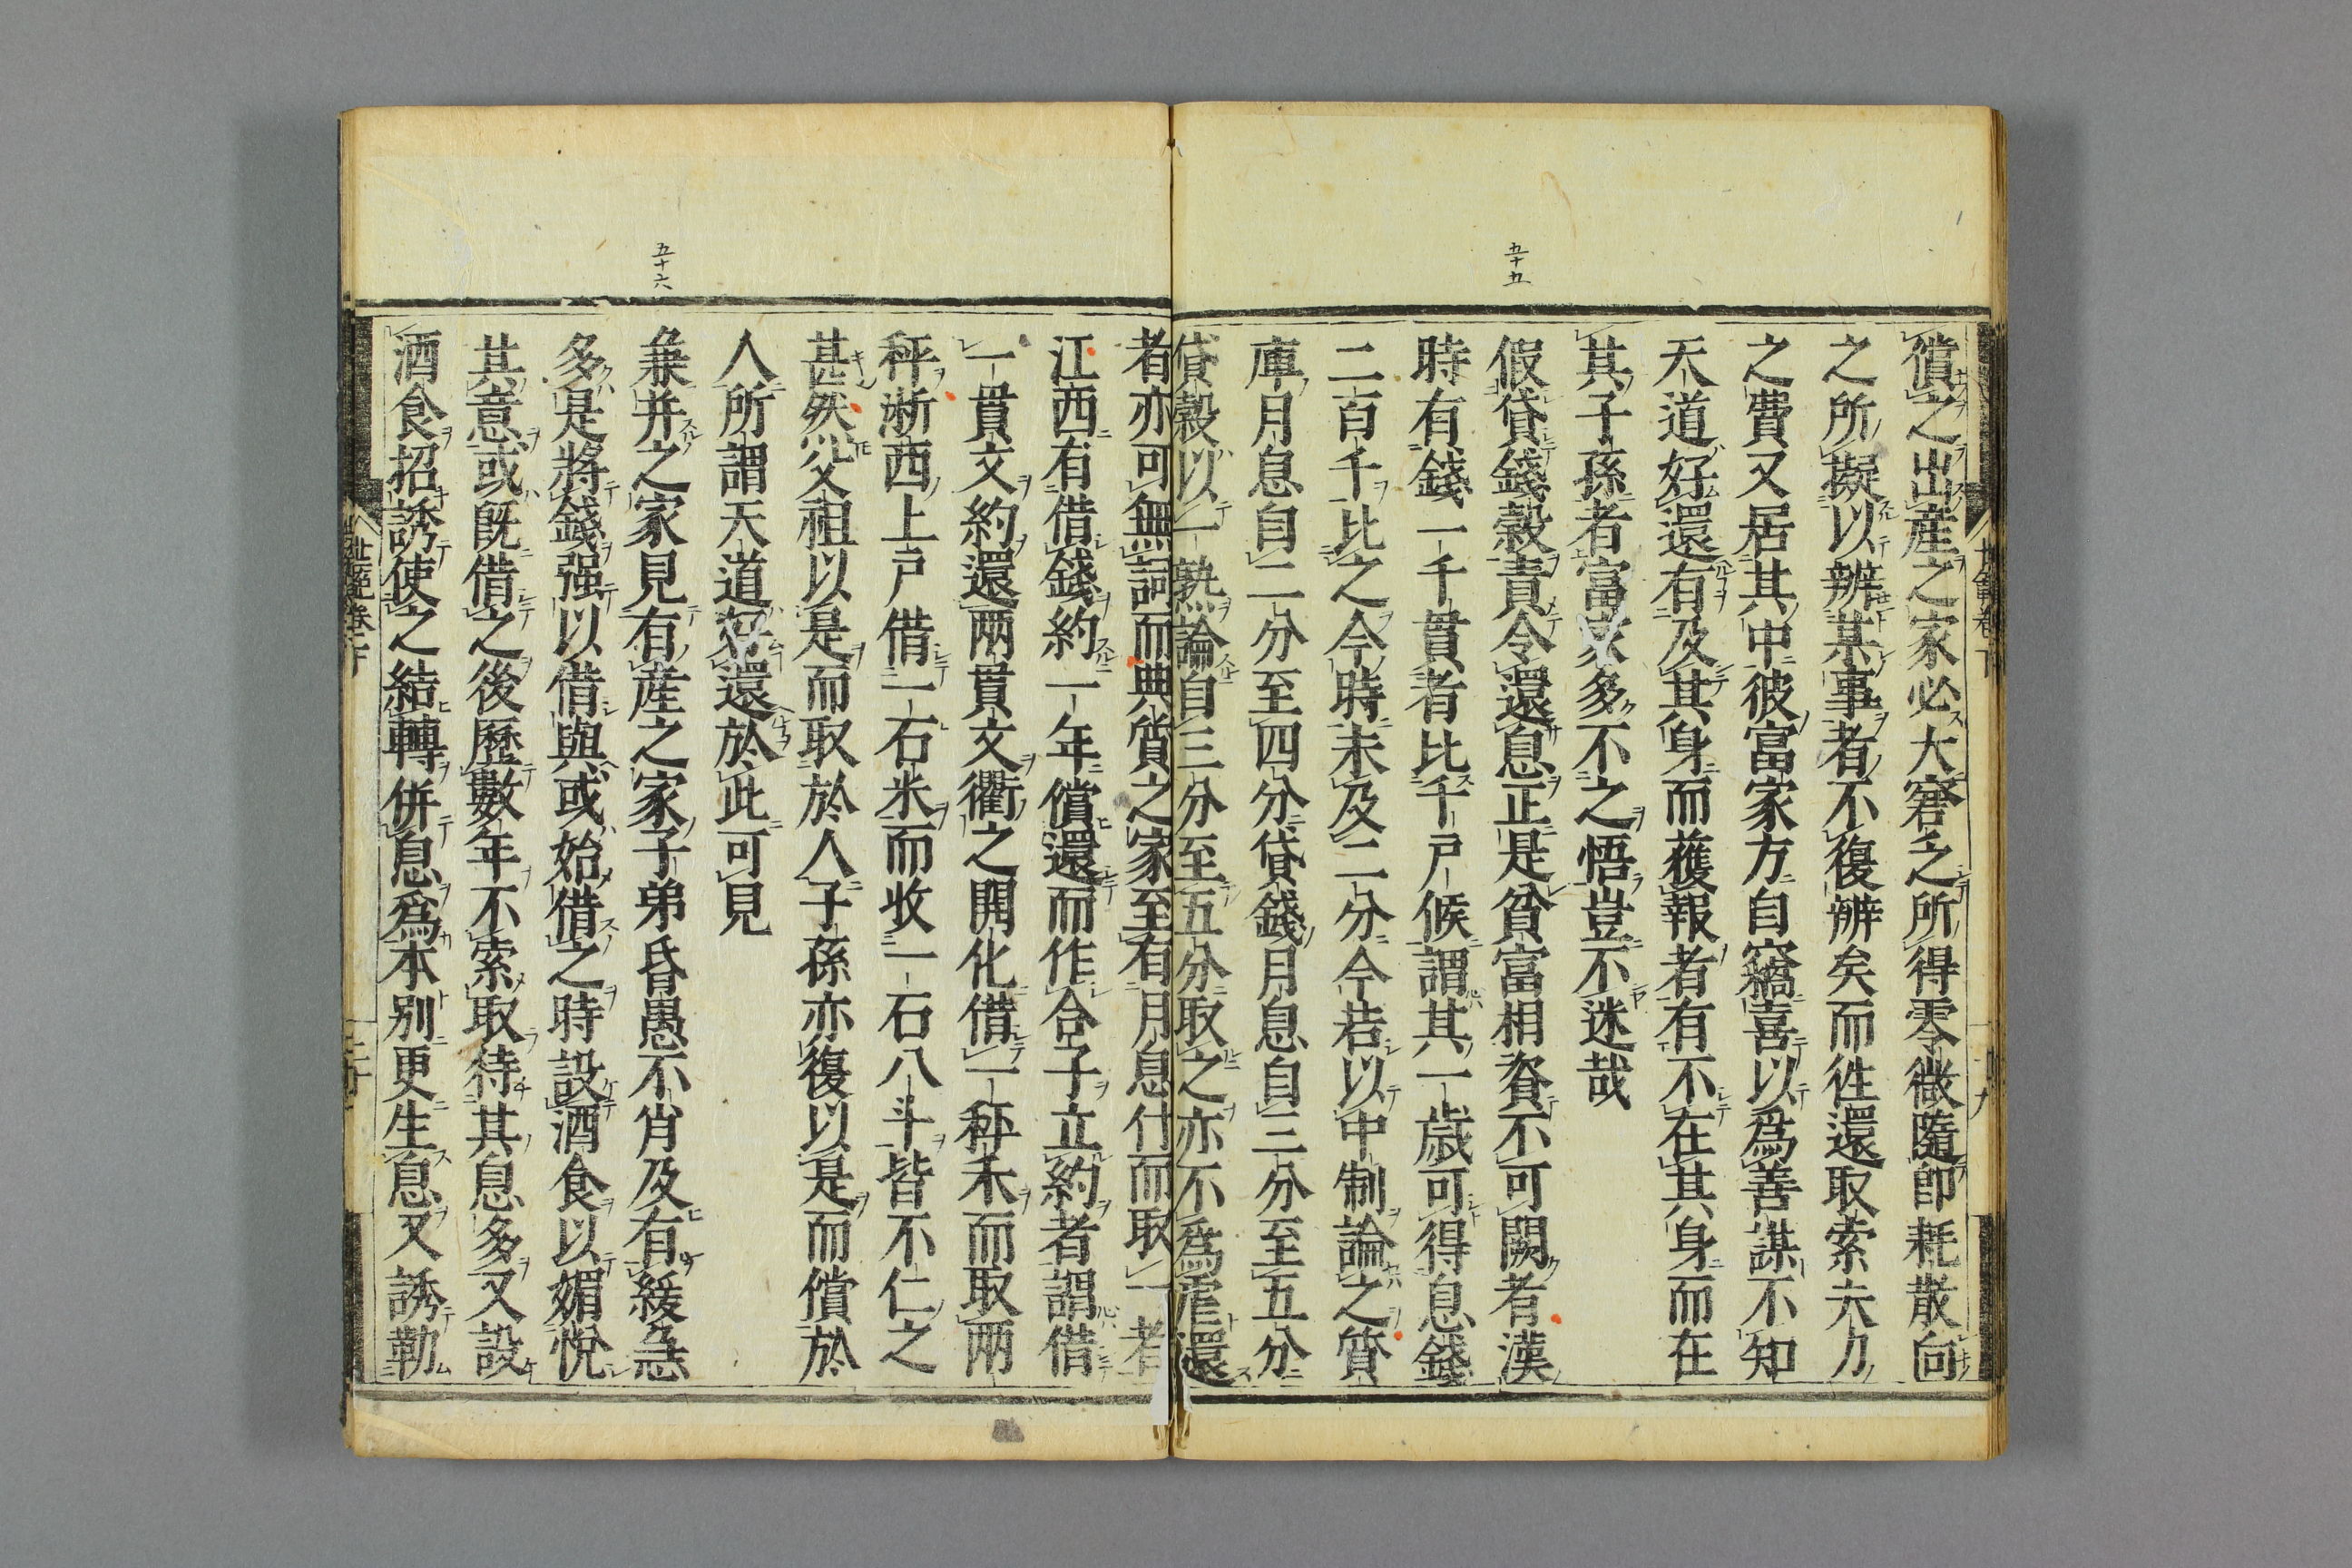 五十五
償之出産之家必大窘之所得零微隨即耗散向
之所擬以辨某事者不復辨矣而徃還取索夫力
之費又居其中彼富家方自竊喜以爲善謀不知
天道好還有及其身而獲報者有不在其身而在
其子孫者富家多不之悟豈不迷哉
假貸錢穀責令還息正是貧富相資不可闕者漢
時有錢一千貫者比千戸侯謂其一歳可得息錢
二百千比之今時未及二分今若以中制論之質
庫月息自二分至四分貸錢月息自三分至五分
貸穀以一熟論自三分至五分取之亦不爲虐還
五十六
者亦可無詞而典質之家至有月息什而取一者
江西有借錢約一年償還而作合子立約者謂借
一貫文約還兩貫文衢之開化借一秤禾而取兩
秤浙西上戸借一石米而收一石八斗皆不仁之
甚然父祖以是而取於人子孫亦復以是而償於
人所謂天道好還於此可見
兼并之家見有産之家子弟昏愚不肖及有緩急
多是將錢强以借與或始借之時設酒食以媚悅
其意或既借之後歷數年不索取待其息多又設
酒食招誘使之結轉併息爲本別更生息又誘勒
世範卷下